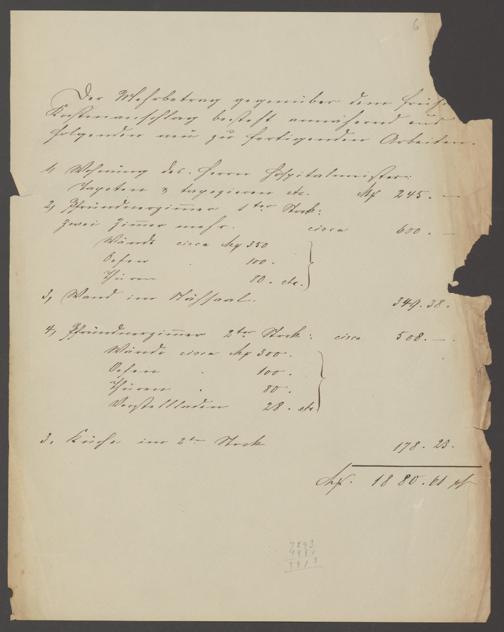 6
Der Mehrbetrag gegenüber dem früh
Kostenanschlag besteht annähernd aus
folgenden neu zu fertigenden Arbeiten.
1, Wohnung des Herrn Hospitalmeister:
Tapeten & tapezieren etc. M 245. —
2, Pfründnerzimmer 1ter Stock:
zwei Zimmer mehr. circa 600. —
Wände circa M 350
Oefen . 100.
Thüren 80. etc.
3, Wand im 349.38.
4, Pfründnerzimmer 2ter Stock: circa 508. —
Wände circa M 300.
Oefen . 100.
Thüren . 80.
Vorstellladen 28. etc
3. Küche im 2ten Stock 178.23.
M. 1880.61 pf